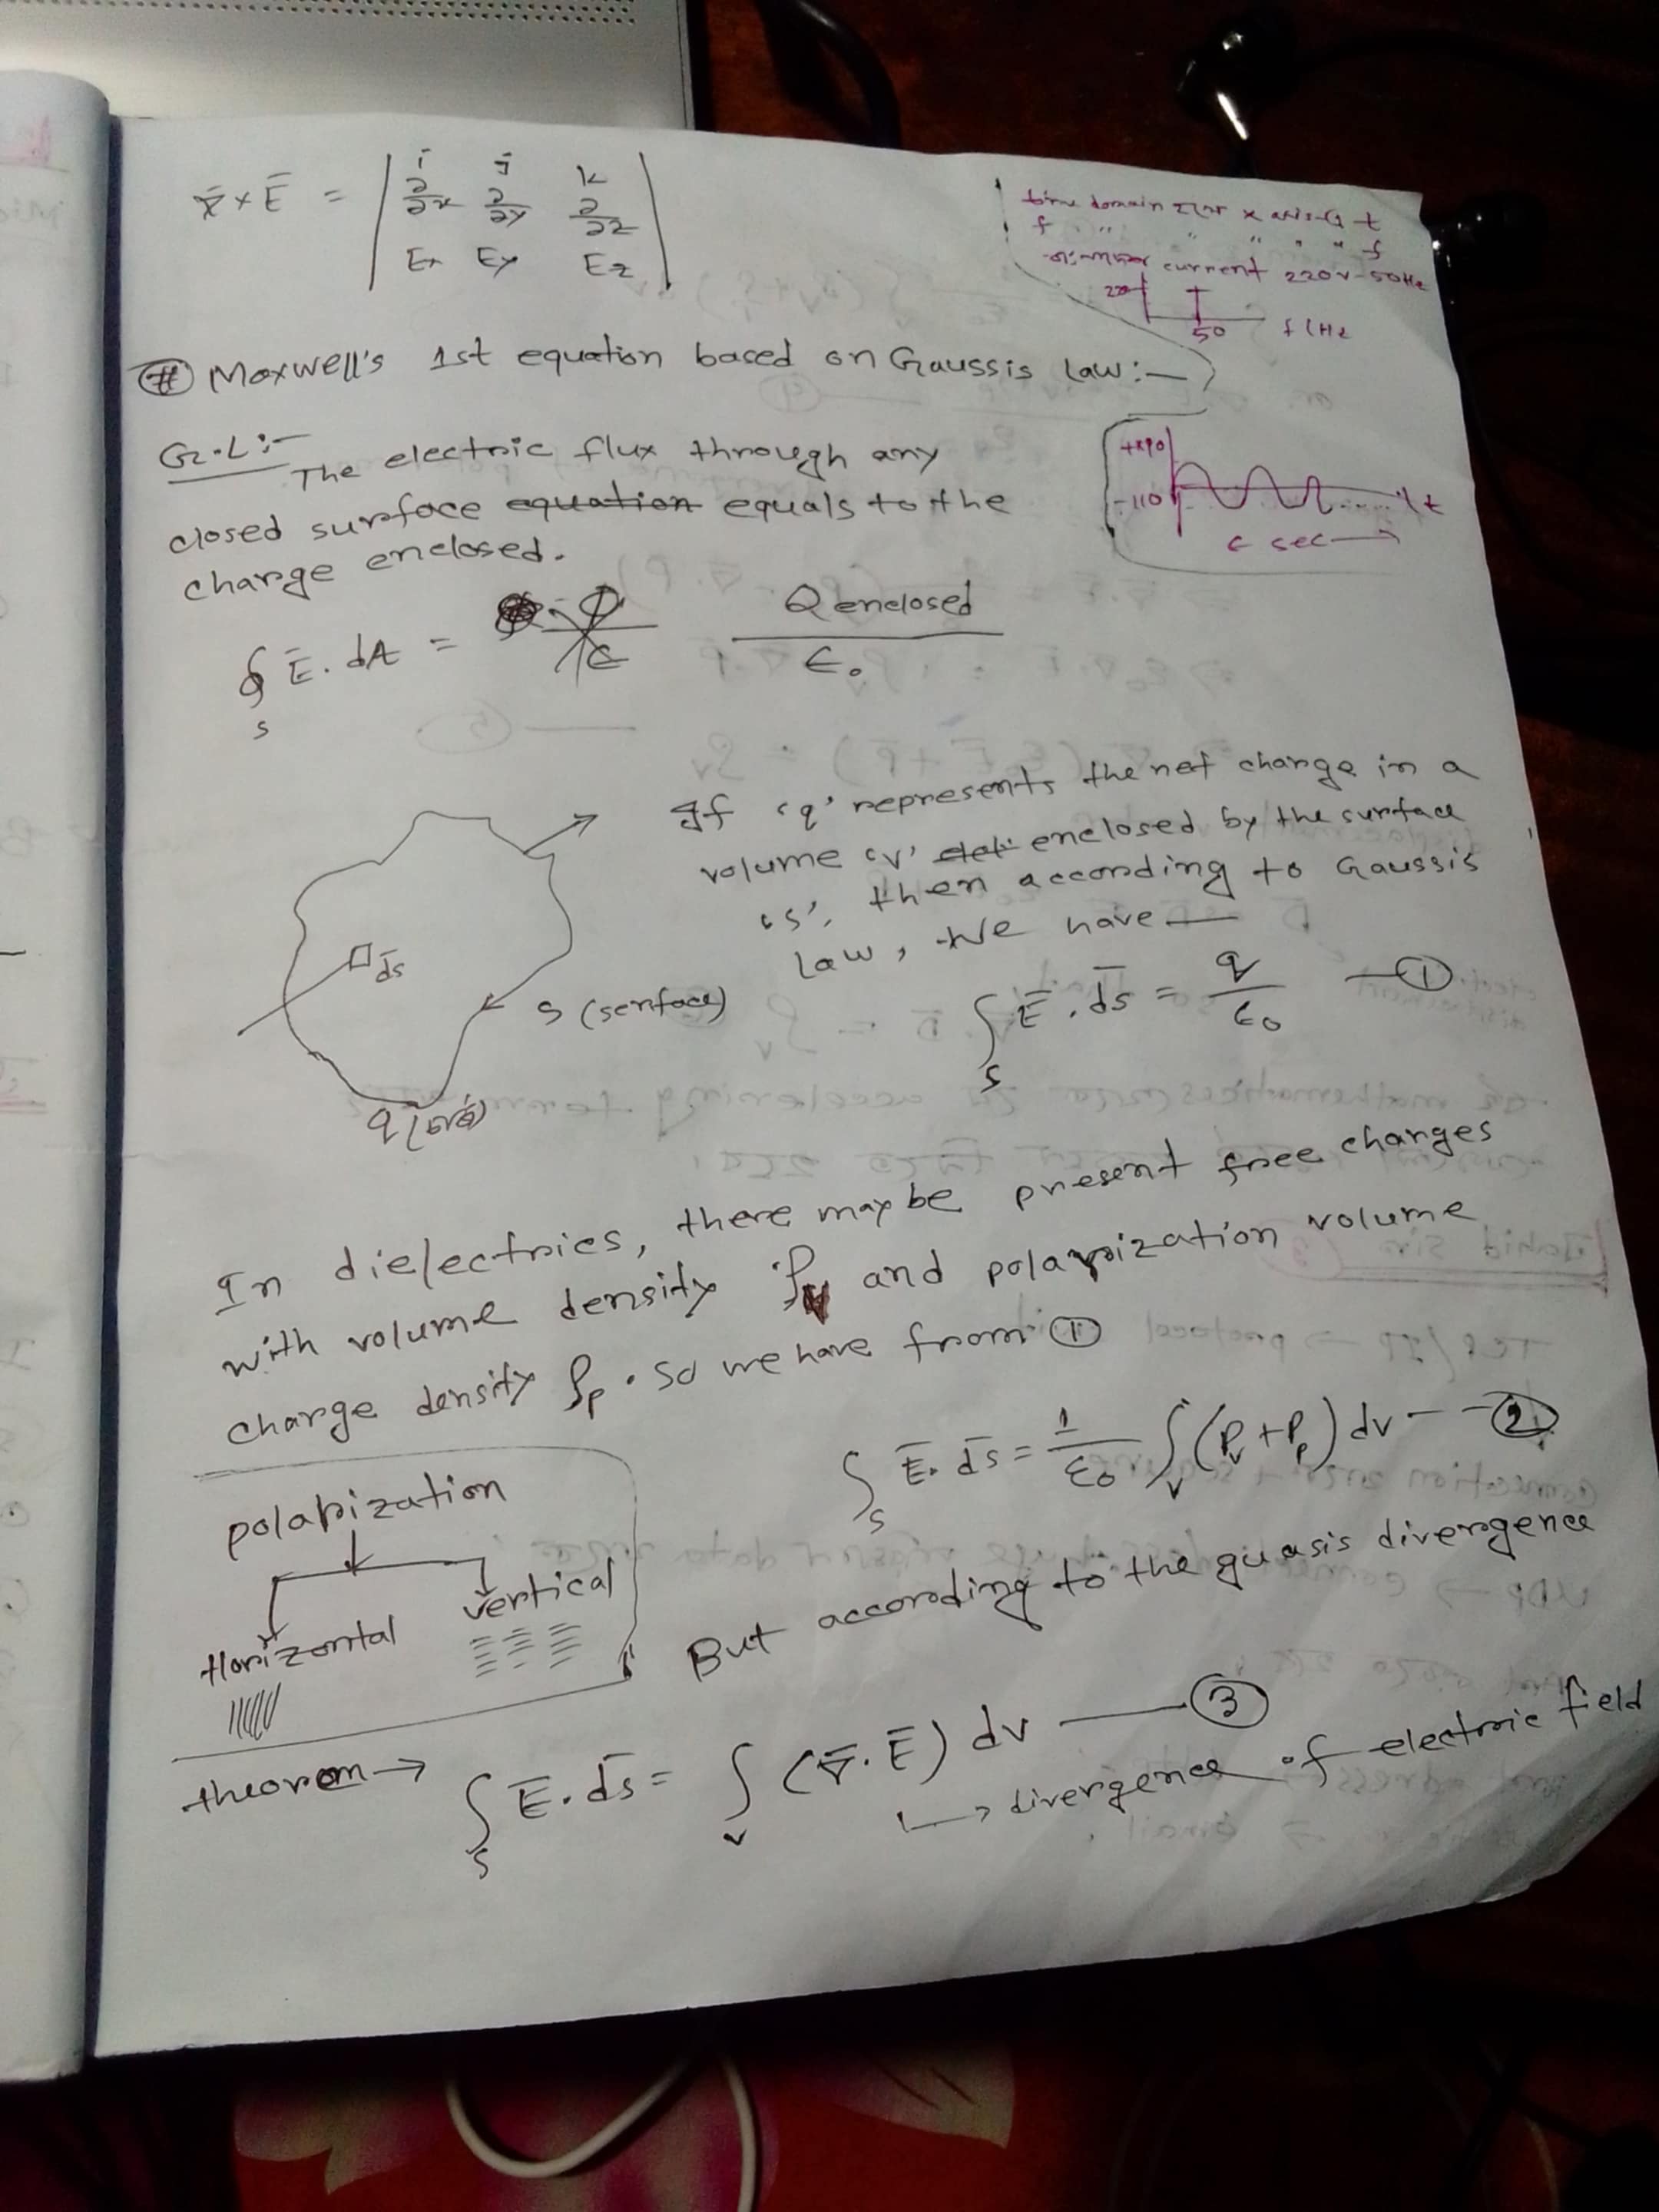 ∇̄ × Ē = | i j k
∂/∂x ∂/∂y ∂/∂z
Ex Ey Ez |
time domain x axis t
f " " " " " f
current 220v-50Hz
220
50 f (Hz
# Maxwell's 1st equation based on Gaussis law:—
G.L:— The electric flux through any
closed surface equation equals to the
charge enclosed.
-110 t
sec →
∮s Ē. dA = Q enclosed / ε₀
If 'q' represents the net charge in a
volume 'v' enclosed by the surface
's', then according to Gaussis
law, We have —
∫s Ē. d̄s = q/ε₀ — ①
d̄s
S (serface)
q
In dielectrics, there may be present free charges
with volume density ρv and polarization volume
charge density ρp. So we have from ①
∫s Ē. d̄s = 1/ε₀ ∫v (ρv + ρp) dv -- ②
polarization
Horizontal vertical
But according to the guasis divergence
theorem → ∫s Ē. d̄s = ∫v (∇̄. Ē) dv — ③
↳ divergence of electric field